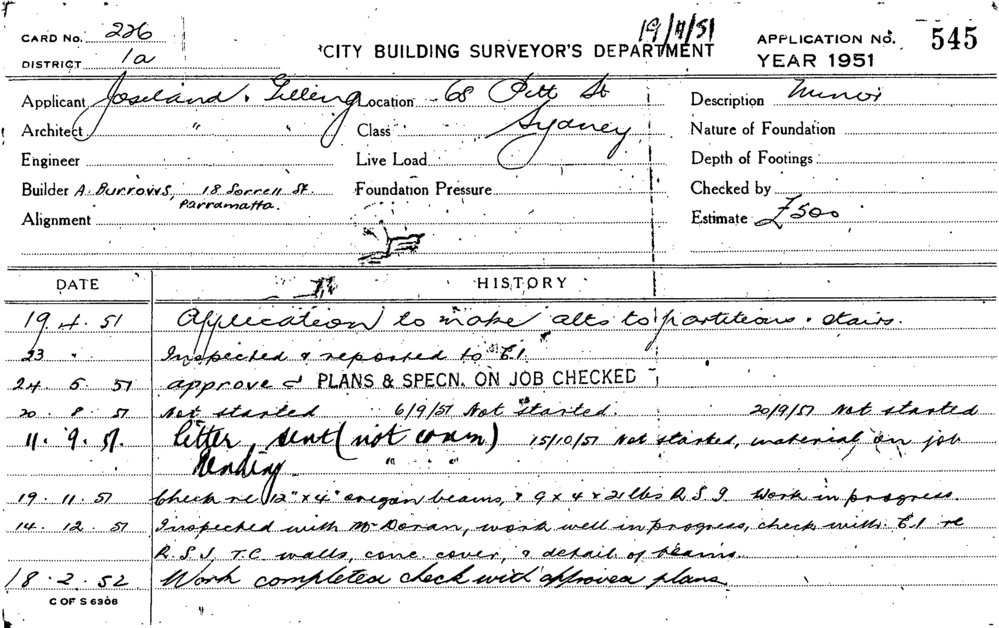 19/4/51
CARD No. 226 CITY BUILDING SURVEYOR'S DEPARTMENT APPLICATION No. 545
DISTRICT 1a YEAR 1951
Applicant Joseland & Gilling Location 68 Pitt St Description Minor
Architect " " Class Sydney Nature of Foundation
Engineer Live Load Depth of Footings
Builder A. Burrows, 18 Sorrell St. Foundation Pressure Checked by
Parramatta.
Alignment Estimate £500
DATE HISTORY
19 4. 51 Application to make alts to partitions & stairs.
23 " Inspected & reported to E1
24. 5. 51 approved PLANS & SPECN. ON JOB CHECKED
20. 8. 51 Not started 6/9/51 Not started. 20/9/51 Not started
11. 9. 51. letter sent (not comm) 15/10/51 Not started, material on job
" "
19. 11. 51 Check re 12" x 4" oregon beams, & 9 x 4 x 21 lbs R.S.J. Work in progress.
14. 12. 51 Inspected with Mr Doran, work well in progress, check with E1 re
R.S.J, T.C. walls, conc. cover, & detail of beams.
18. 2. 52 Work completed check with approved plans
C OF S 6308